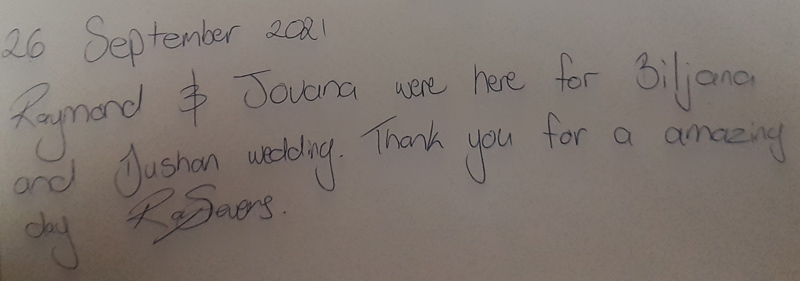 26 September 2021
Raymond & Jovana were here for Biljana
and Dushan wedding. Thank you for a amazing
day